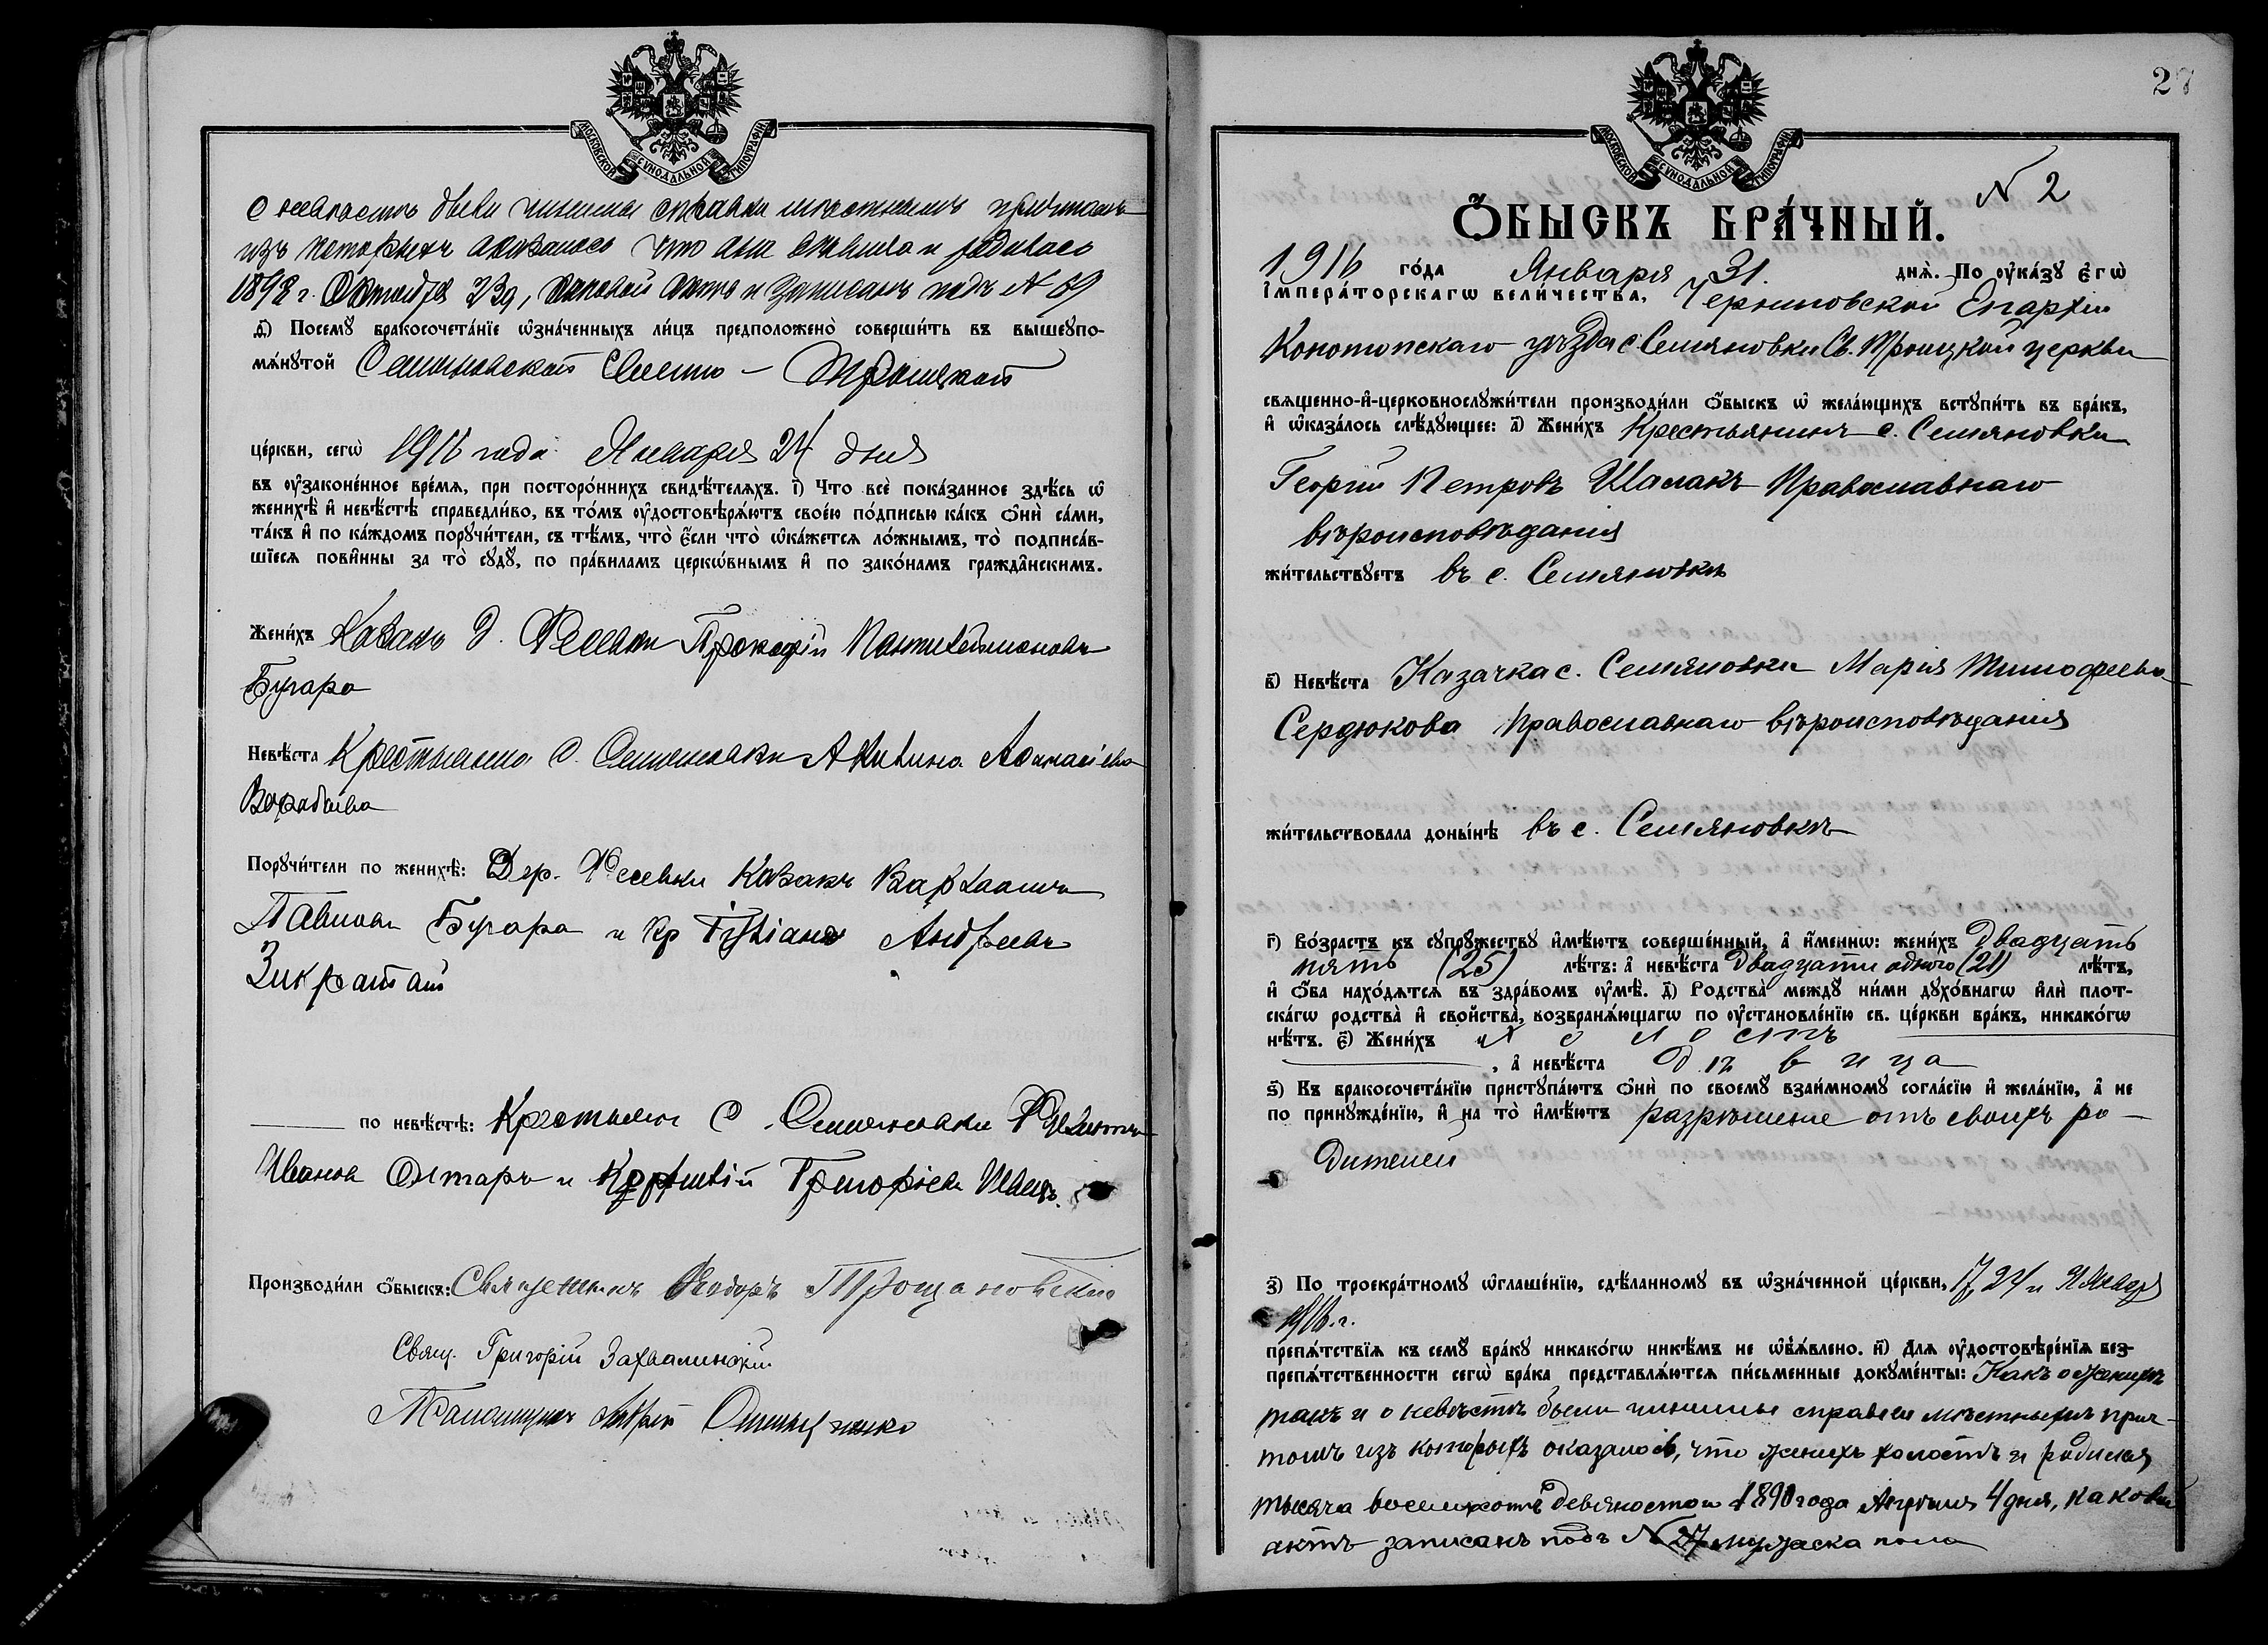 МОСКОВСКОЙ СѴНОДАЛЬНОЙ ТИПОГРАФІИ
о невѣстѣ были чинимы справки мѣстнымъ причтомъ
изъ которыхъ оказалось что она дѣвица и родилась
189 г. Октября 23д, каковой актъ и записанъ подъ № 69
д҃) Посемꙋ бракосочета́нїе ѡ҆зна́ченныхъ ли́цъ предположено̀ соверши́ть въ вышеꙋпо-
мѧ́нꙋтой Семяновской Свято - Троицкой
це́ркви, сегѡ̀ 1916 года Января 24 дня
въ ѹ҆законе́нное вре́мѧ, при посторо́ннихъ свидѣ́телѧхъ. і҃) Что всѐ пока́занное здѣ́сь ѡ҆
женихѣ̀ и҆ невѣ́стѣ справедли́во, въ то́мъ ѹ҆достовѣрѧ́ютъ свое́ю по́дписью ка́къ ѻ҆нѝ са́ми,
та́къ и҆ по ка́ждомъ порꙋчи́тели, съ тѣ́мъ, что̀ є҆́сли что̀ ѡ҆ка́жетсѧ ло́жнымъ, то̀ подписа́в-
шїесѧ пови́нны за то̀ сꙋдꙋ̀, по пра́виламъ церкѡ́внымъ и҆ по зако́намъ гражда̑нскимъ.
Жени́хъ Казакъ д. Фесевки Прокофій Пантелеймоновъ
Бугара
Невѣ́ста Крестьянка С. Семяновки Акилина Афанасіева
Воробьева
Порꙋчи́тели по женихѣ̀: Дер. Фесевки Казакъ Варлаамъ
Павловъ Бугара и кр Іуліанъ Андреевъ
по невѣ́стѣ: Крестьяне С. Семяновки
Иванов и Григорьев
Производи́ли ѻ҆́быскъ: Священникъ Ѳеодоръ Трощановскій
Свящ. Григорій Захвалинскій
27
МОСКОВСКОЙ СѴНОДАЛЬНОЙ ТИПОГРАФІИ
N 2
Ѻ҆́БЫСКЪ БРА́ЧНЫЙ.
1916 го́да Января 31. днѧ̀. По ѹ҆ка́зꙋ є҆гѡ̀
і҆мпера́торскагѡ вели́чества, Черниговской Епархіи
Конотопскаго уѣзда с. Семяновки Св. Троицкой церкви
свѧще́нно-и҆-церковнослꙋжи́тели производи́ли ѻ҆́быскъ ѡ҆ жела́ющихъ вступи́ть въ бра́къ,
и҆ ѡ҆каза́лось слѣ́дꙋющее: а҃) Жени́хъ Крестьянинъ с. Семяновки
Георгій Петровъ Шалакъ Православнаго
вѣроисповѣданія
жи́тельствꙋетъ въ с. Семяновкѣ
в҃) Невѣ́ста Казачка с. Семяновки Марія Тимофеева
Сердюкова Православнаго вѣроисповѣданія
жи́тельствовала доны́нѣ въ с. Семяновкѣ
г҃) Во́зрастъ къ сꙋпрꙋ́жествꙋ и҆мѣ́ютъ соверше́нный, а҆ и҆́меннѡ: жени́хъ двадцать
пять (25) лѣ́тъ: а҆ невѣ́ста двадцати одного (21) лѣ́тъ,
и҆ ѻ҆́ба нахо́дѧтсѧ въ здра́вомъ ѹ҆мѣ̀. д҃) Родства̀ междꙋ̀ ни́ми дꙋхо́внагѡ и҆лѝ плот-
ска́гѡ родства̀ и҆ свойства̀, возбранѧ́ющагѡ по ѹ҆становле́нїю св. це́ркви бра́къ, никако́гѡ
нѣ́тъ. є҃) Жени́хъ холостъ
, а҆ невѣ́ста дѣвица
ѕ҃) Къ бракосочета́нїю пристꙋпа́ютъ ѻ҆нѝ по своемꙋ̀ взаи́мномꙋ согла́сїю и҆ жела́нїю, а҆ не
по принꙋжде́нїю, и҆ на то̀ и҆мѣ́ютъ разрѣшеніе отъ своихъ ро-
дителей
з҃) По троекра́тномꙋ ѡ҆глаше́нїю, сдѣ́ланномꙋ въ ѡ҆зна́ченной це́ркви, 17, 24 и
1916 г.
препѧ́тствїѧ къ семꙋ̀ бра́кꙋ никако́гѡ никѣ́мъ не ѡ҆б̾ѧ́влено. и҃) Длѧ ѹ҆достовѣре́нїѧ без-
препѧ́тственности сегѡ̀ бра́ка представлѧ́ютсѧ пи́сьменные докꙋме́нты: Какъ о женихѣ
такъ и о невѣстѣ были чинимы справки мѣстнымъ прич-
томъ изъ которыхъ оказалось, что женихъ холостъ и родился
тысяча восемьсотъ девяностого 1890 года Апрѣля 4 дня, каковый
актъ записанъ подъ N 27 мужеска пола